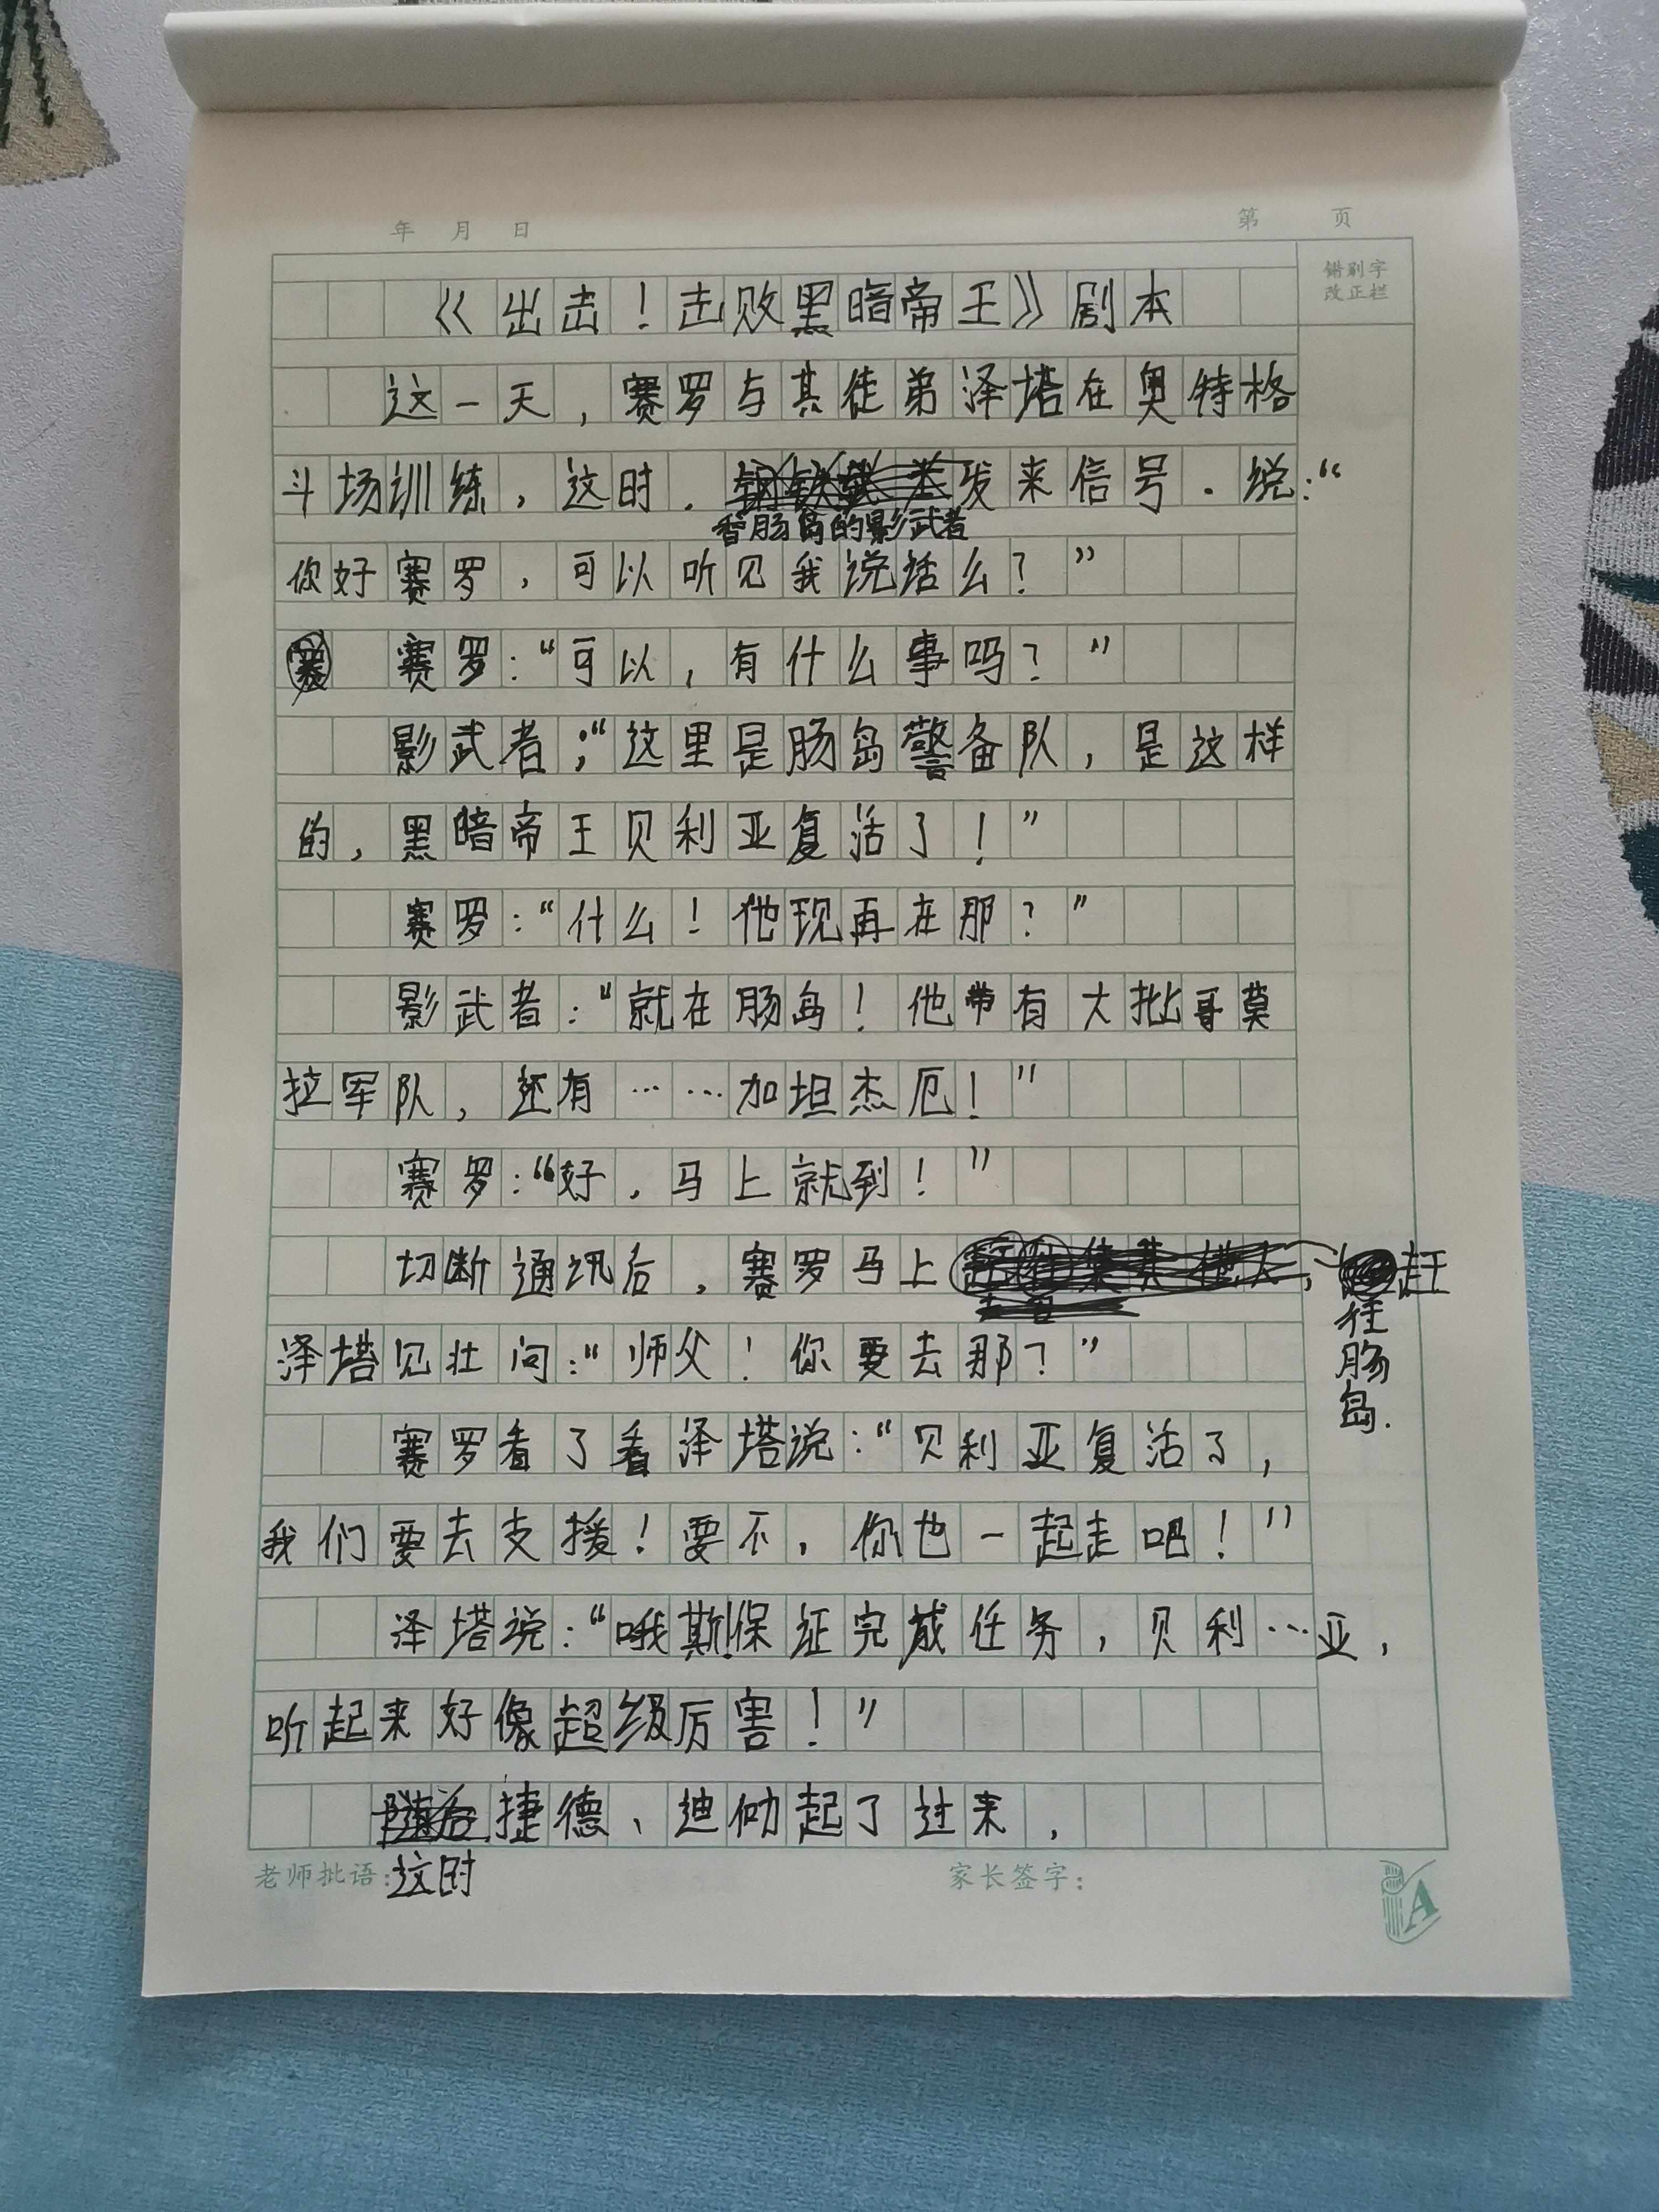 年 月 日
第 页
错别字
改正栏
《出击！击败黑暗帝王》剧本
这一天，赛罗与其徒弟泽塔在奥特格
斗场训练，这时．发来信号．说：“
香肠岛的影武者
你好赛罗，可以听见我说话么？”
赛罗：“可以，有什么事吗？”
影武者：“这里是肠岛警备队，是这样
的，黑暗帝王贝利亚复活了！”
赛罗：“什么！他现再在那？”
影武者：“就在肠岛！他带有大批哥莫
拉军队，还有……加坦杰厄！”
赛罗：“好，马上就到！”
切断通讯后，赛罗马上，赶
往
肠
岛.
泽塔见壮问：“师父！你要去那？”
赛罗看了看泽塔说：“贝利亚复活了，
我们要去支援！要不，你也一起走吧！”
泽塔说：“哦斯！保证完成任务，贝利…亚，
听起来好像超级厉害！”
捷德、迪起了过来，
这时
老师批语：
家长签字：